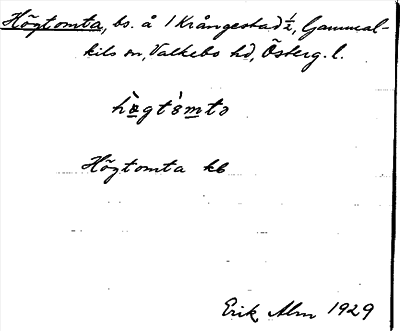 Högtomta, bs. å 1 Krångestad ½, Gammal-
kils sn, Valkebo hd, Österg. l.
Högtomta kb
Erik Alm 1929